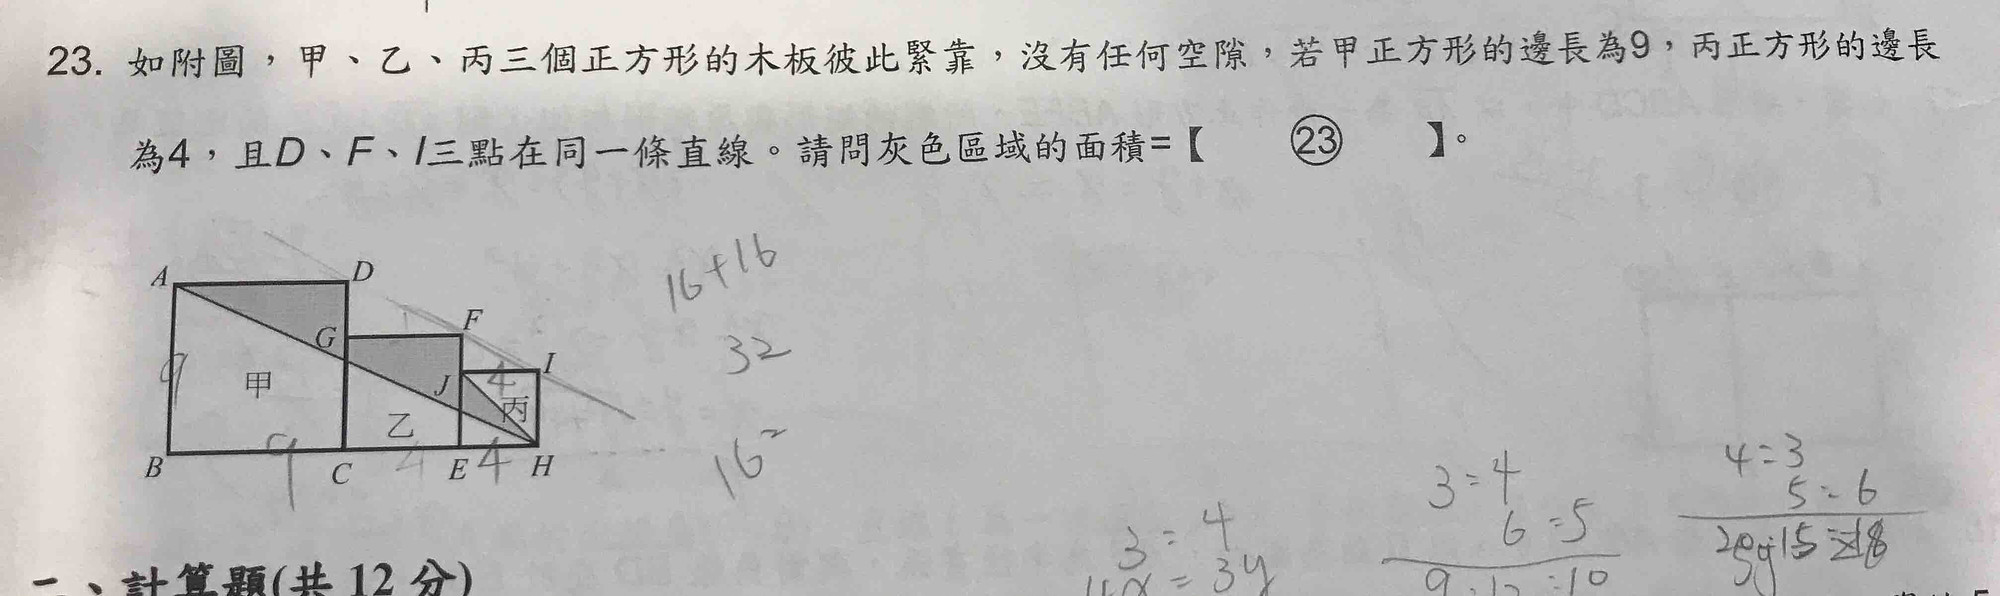 23. 如附圖，甲、乙、丙三個正方形的木板彼此緊靠，沒有任何空隙，若甲正方形的邊長為9，丙正方形的邊長
為4，且D、F、I三點在同一條直線。請問灰色區域的面積=【 ㉓ 】。
A D
G F
J I
9 甲 4 丙
乙
9 4 4
B C E H
16+16
32
16
3:4
4x=3y
3:4
6:5
9:12:10
4:3
5:6
二、計算題(共 12 分)